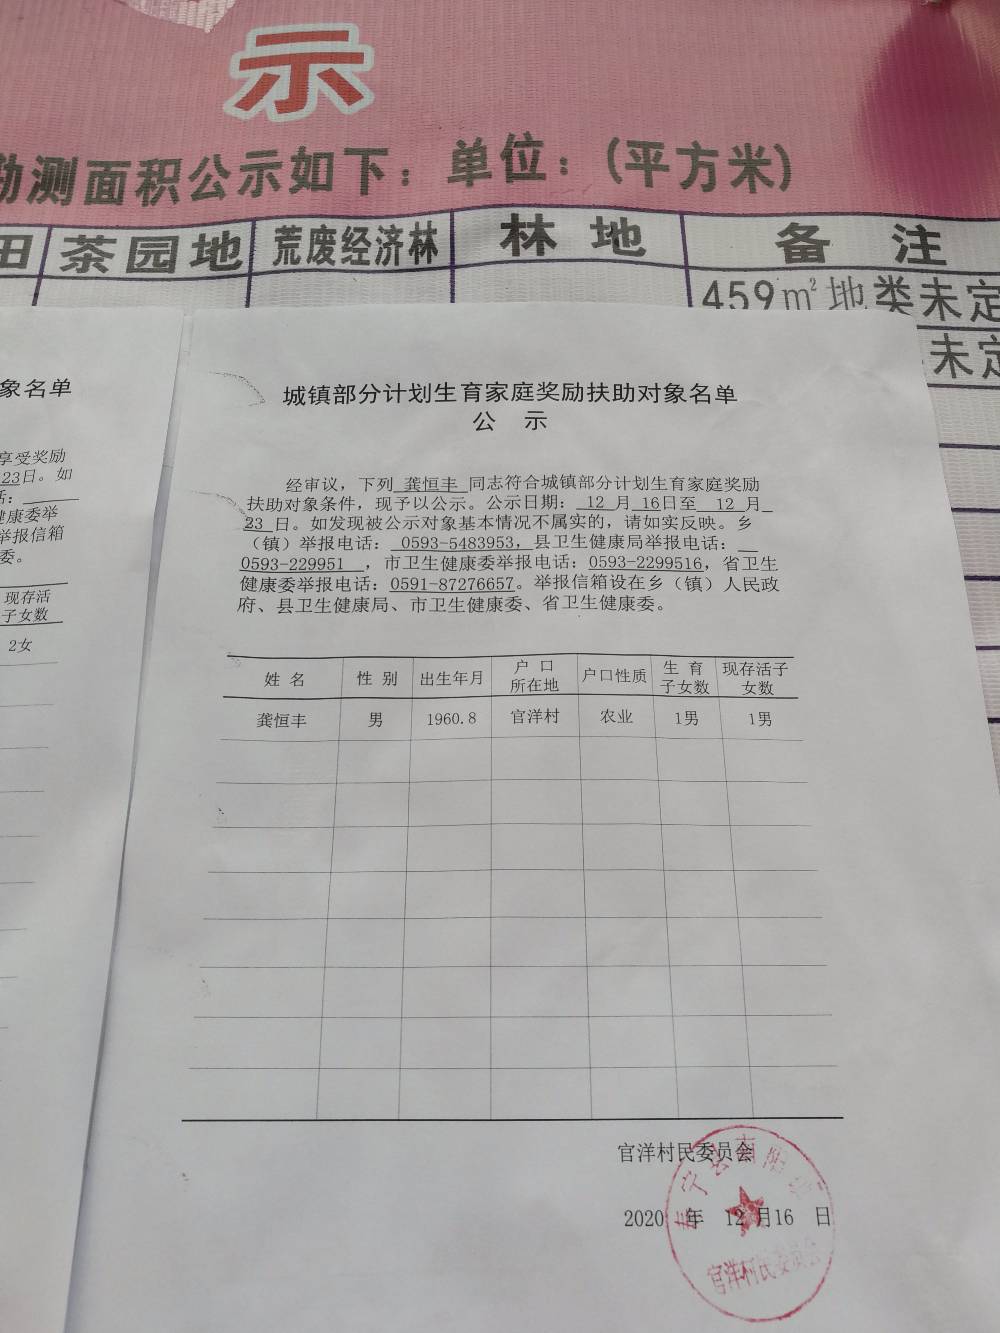 示
测面积公示如下：单位：(平方米)
田 茶园地 荒废经济林 林 地 备 注
459㎡地类未定
未定
象名单
享受奖励
23日。如
康委举
举报信箱
委。
现存活
子女数
2女
城镇部分计划生育家庭奖励扶助对象名单
公 示
经审议，下列 龚恒丰 同志符合城镇部分计划生育家庭奖励
扶助对象条件，现予以公示。公示日期： 12 月 16日至 12 月
23 日。如发现被公示对象基本情况不属实的，请如实反映。乡
（镇）举报电话： 0593-5483953，县卫生健康局举报电话：
0593-229951 ，市卫生健康委举报电话：0593-2299516，省卫生
健康委举报电话：0591-87276657。举报信箱设在乡（镇）人民政
府、县卫生健康局、市卫生健康委、省卫生健康委。
姓 名 性 别 出生年月 户 口 所在地 户口性质 生 育 子女数 现存活子 女数
龚恒丰 男 1960.8 官洋村 农业 1男 1男
官洋村民委员会
2020 年 12 月16 日
宁县南阳
官洋村民委员会